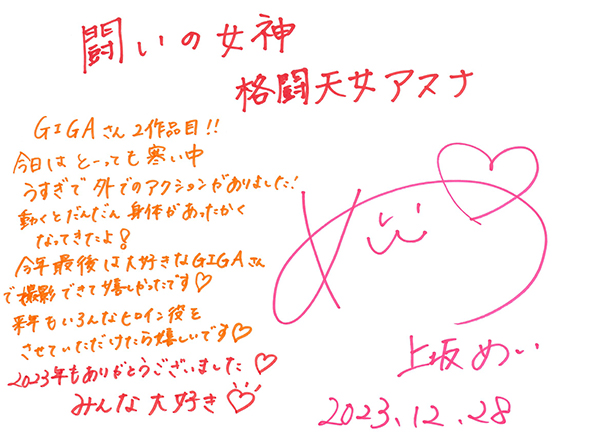 闘いの女神
格闘天女アスナ
GIGAさん2作品目!!
今日はとーっても寒い中
うすぎで外でのアクションがありました!
動くとだんだん身体があったかく
なってきたよ!
今年最後は大好きなGIGAさん
で撮影できて嬉しかったです♡
来年もいろんなヒロイン役を
させていただけたら嬉しいです♡
2023年もありがとうございました♡
みんな大好き♡
上坂めい
2023.12.28